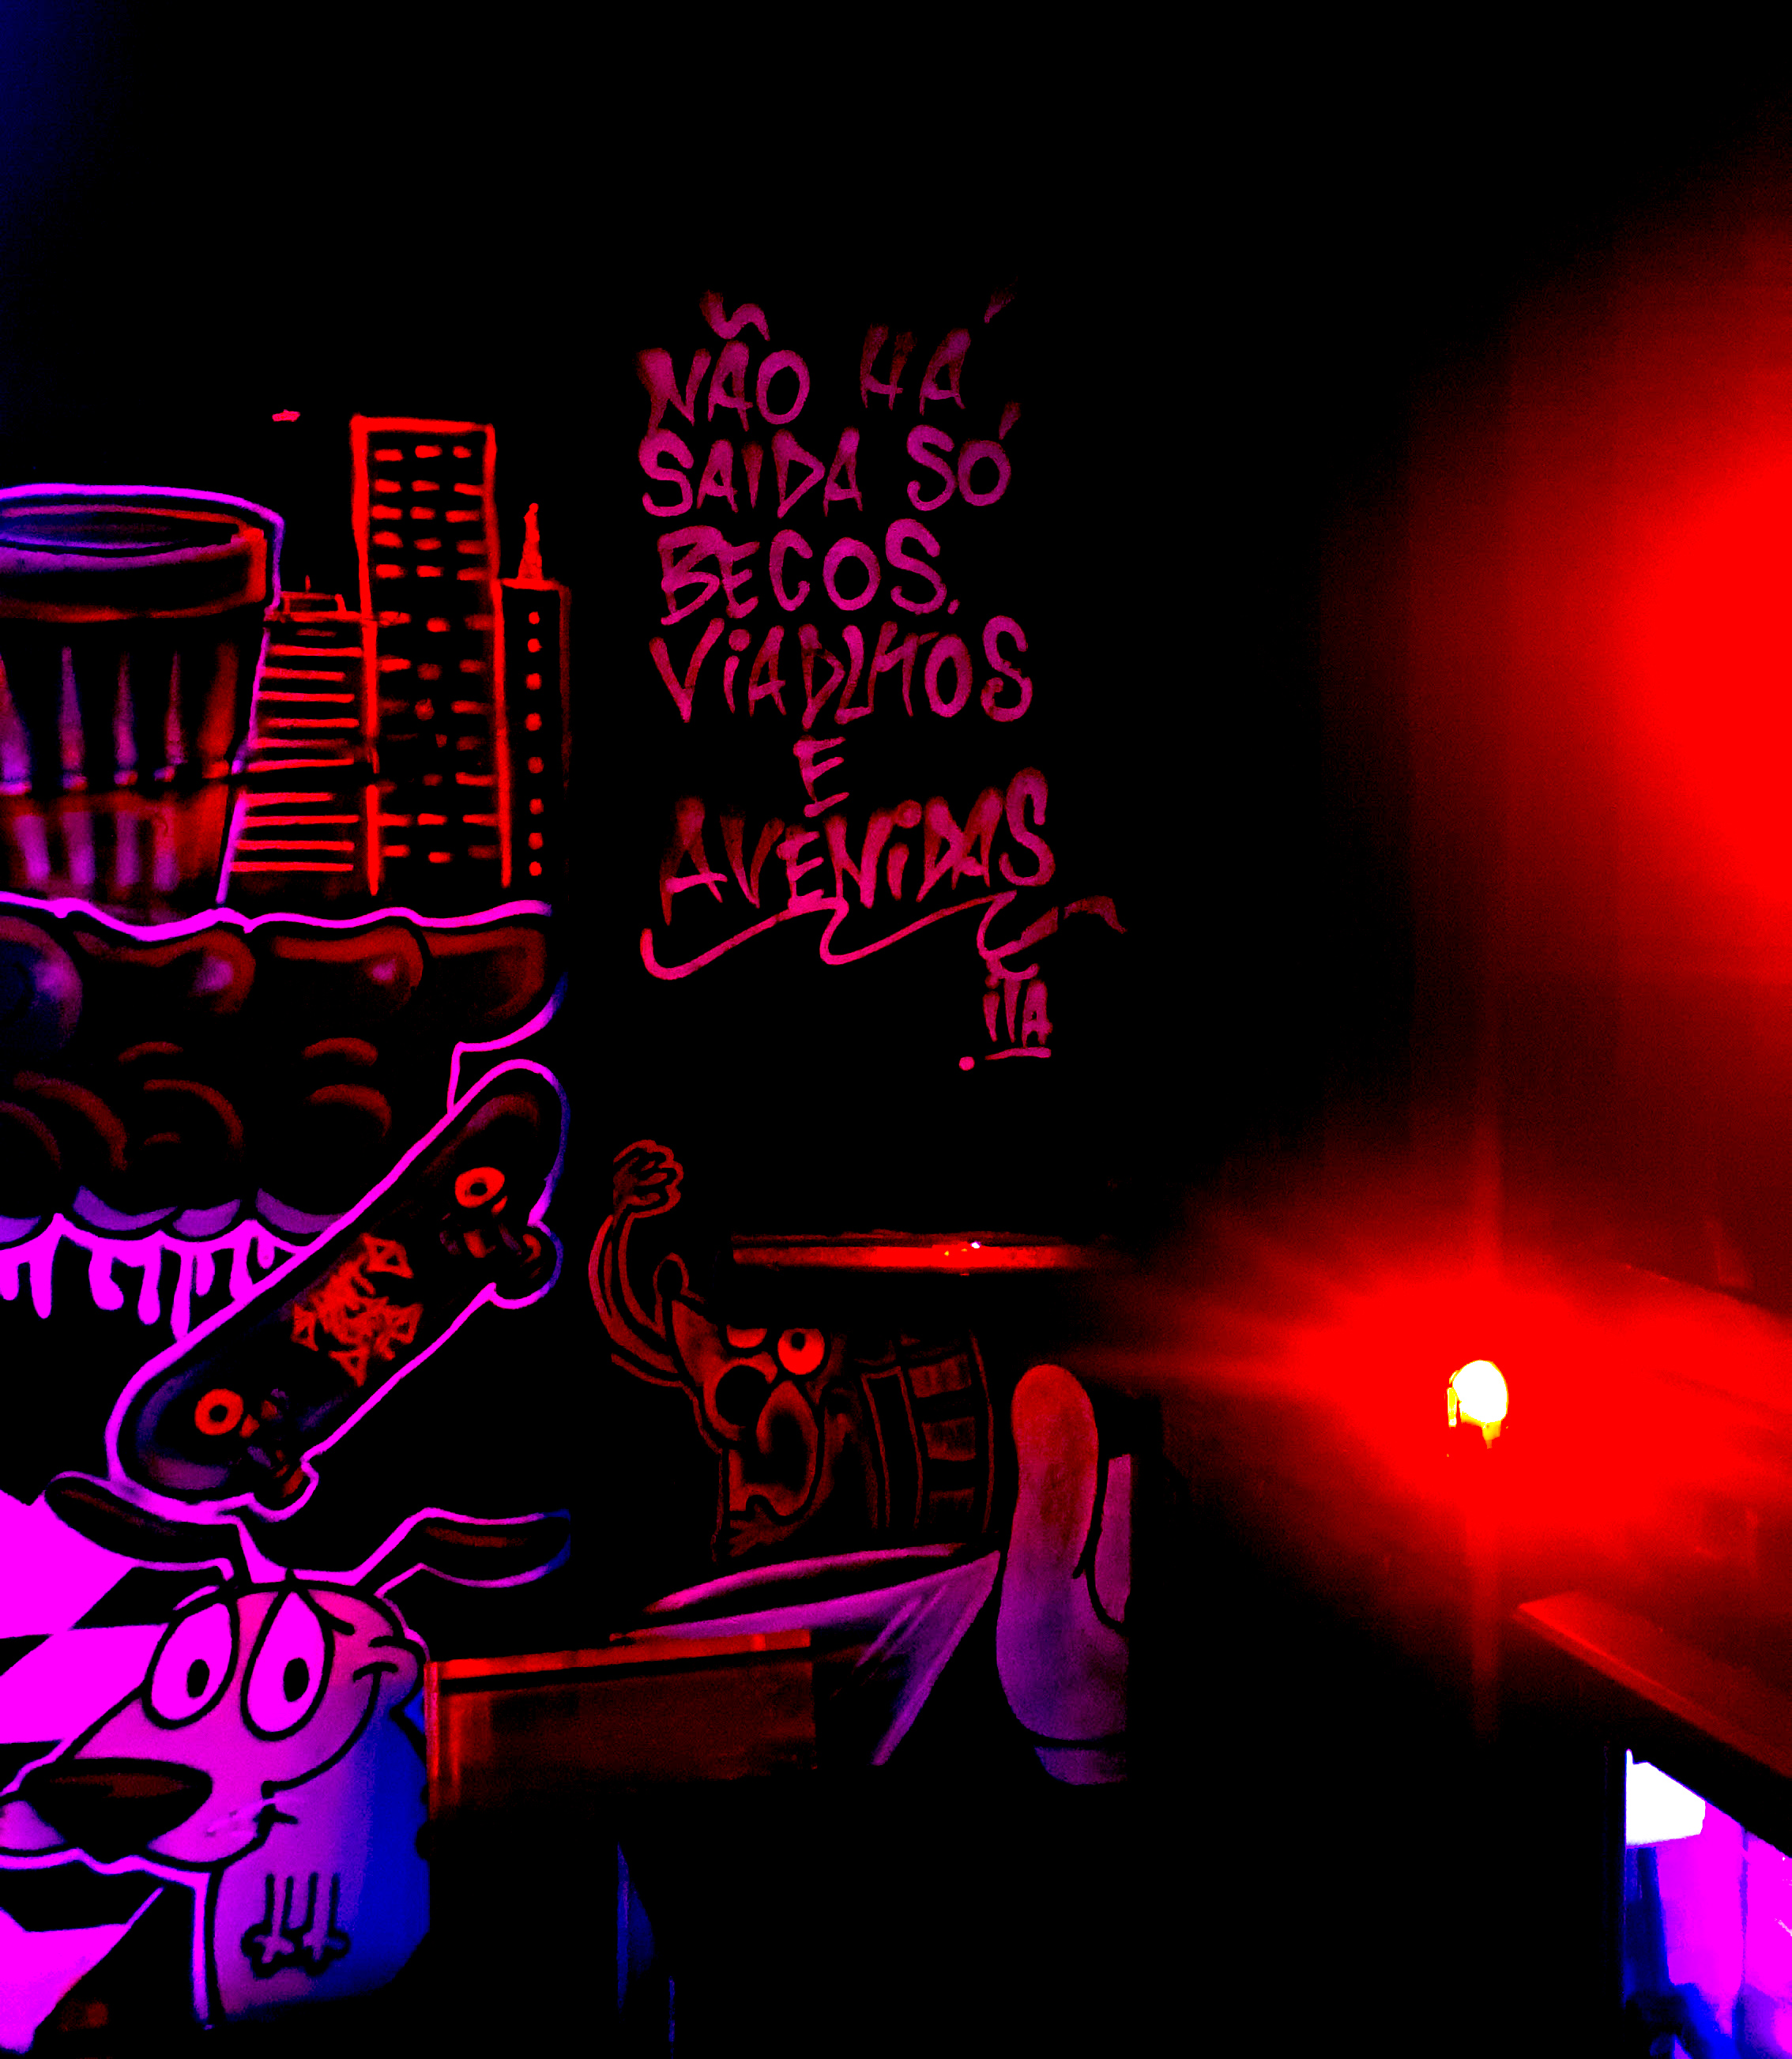 NÃO HÁ
SAIDA SÓ
BECOS,
ViADUTOS
E
AVENiDAS
iTA